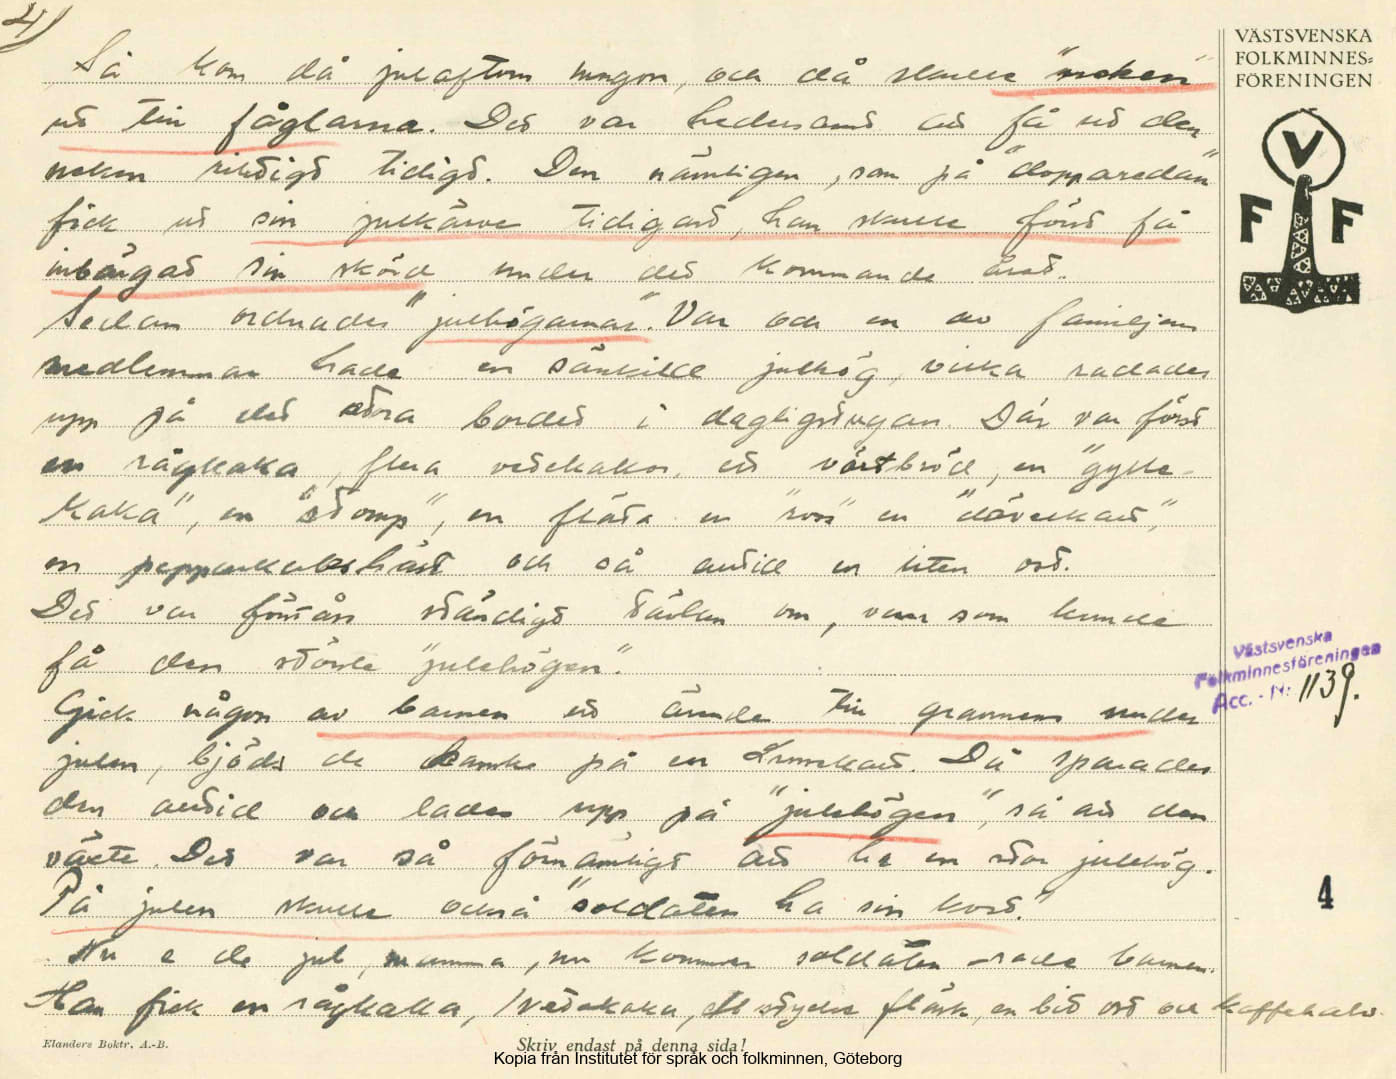 4)
VÄSTSVENSKA
FOLKMINNES=
FÖRENINGEN
V
F F
Så kom då julaftons morgon, och då skulle "neken"
ut till fåglarna. Det var hedersamt att få ut den
neken riktigt tidigt. Den nämligen, som på "dopparedan"
fick ut sin julkärve tidigast, han skulle först få
inbärgad sin skörd under det kommande året.
Sedan ordnades "julhögarna". Var och en av familjens
medlemmar hade en särskild julhög, vilka radades
upp på det stora bordet i dagligstugan. Där var först
en rågkaka, flera vetekakor, ett vörtbröd, en "gylle-
kaka", en "stomp", en fläta en "ross" en "döveekast",
en pepparkakshäst och så alltid en liten ost.
Det var förstås ständigt tävlan om, vem som kunde
få den största "julehögen".
Gick någon av barnen ett ärende till grannens under
julen, bjöds de kanske på en Lussekatt. Då sparades
den alltid och lades upp på "julehögen", så att den
växte. Det var så förnämligt att ha en stor julehög.
På julen skulle också "soldaten ha sin kost."
Nu e de jul, mamma, nu kommer soldaten sade barnen.
Han fick en rågkaka, 1 vetekaka, ett stycke fläsk, en bit ost och kaffehalv.
Västsvenska
Folkminnesföreningen
Acc. - Nr 1139.
4
Elanders Boktr. A.-B.
Skriv endast på denna sida!
Kopia från Institutet för språk och folkminnen, Göteborg